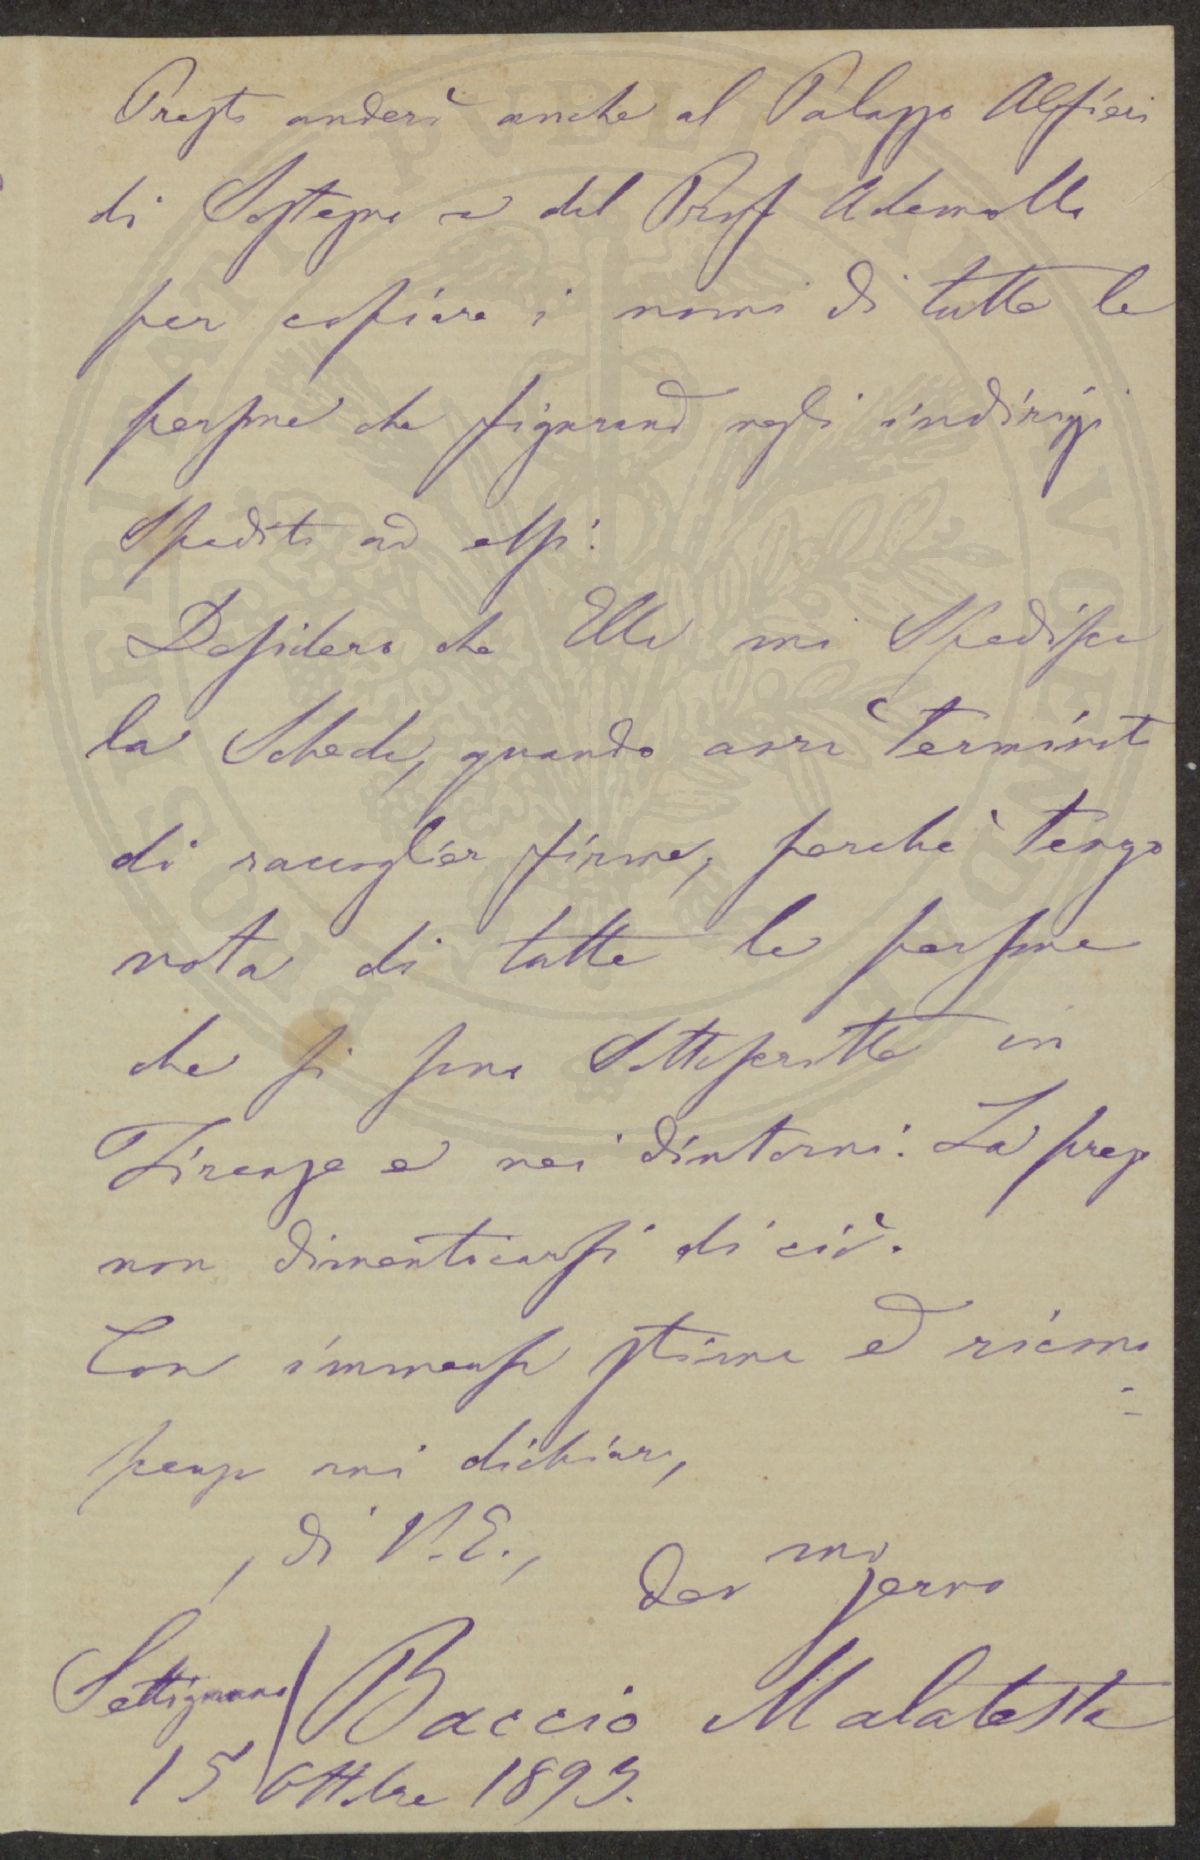 Presto anderò anche al Palazzo Alfieri
di Sostegno e del Prof Ademollo
per copiare i nomi di tutte le
persone che figurano negli indirizzi
Spediti ad essi.
Desidero che Ella mi Spedisca
la Scheda, quando avrà terminato
di raccoglier firme, perchè tengo
nota di tutte le persone
che si sono Sottoscritte in
Firenze e nei dintorni. La prego
non dimenticarsi di ciò.
Con immensa stima ed ricono
=
scenza mi dichiaro,
di V. E.,
dev mo servo
Settignano
Baccio Malatesta
15 Ottbre 1893.